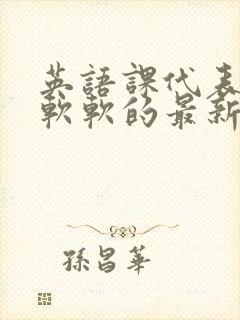 英語課代表
軟軟的最新
孫昌華